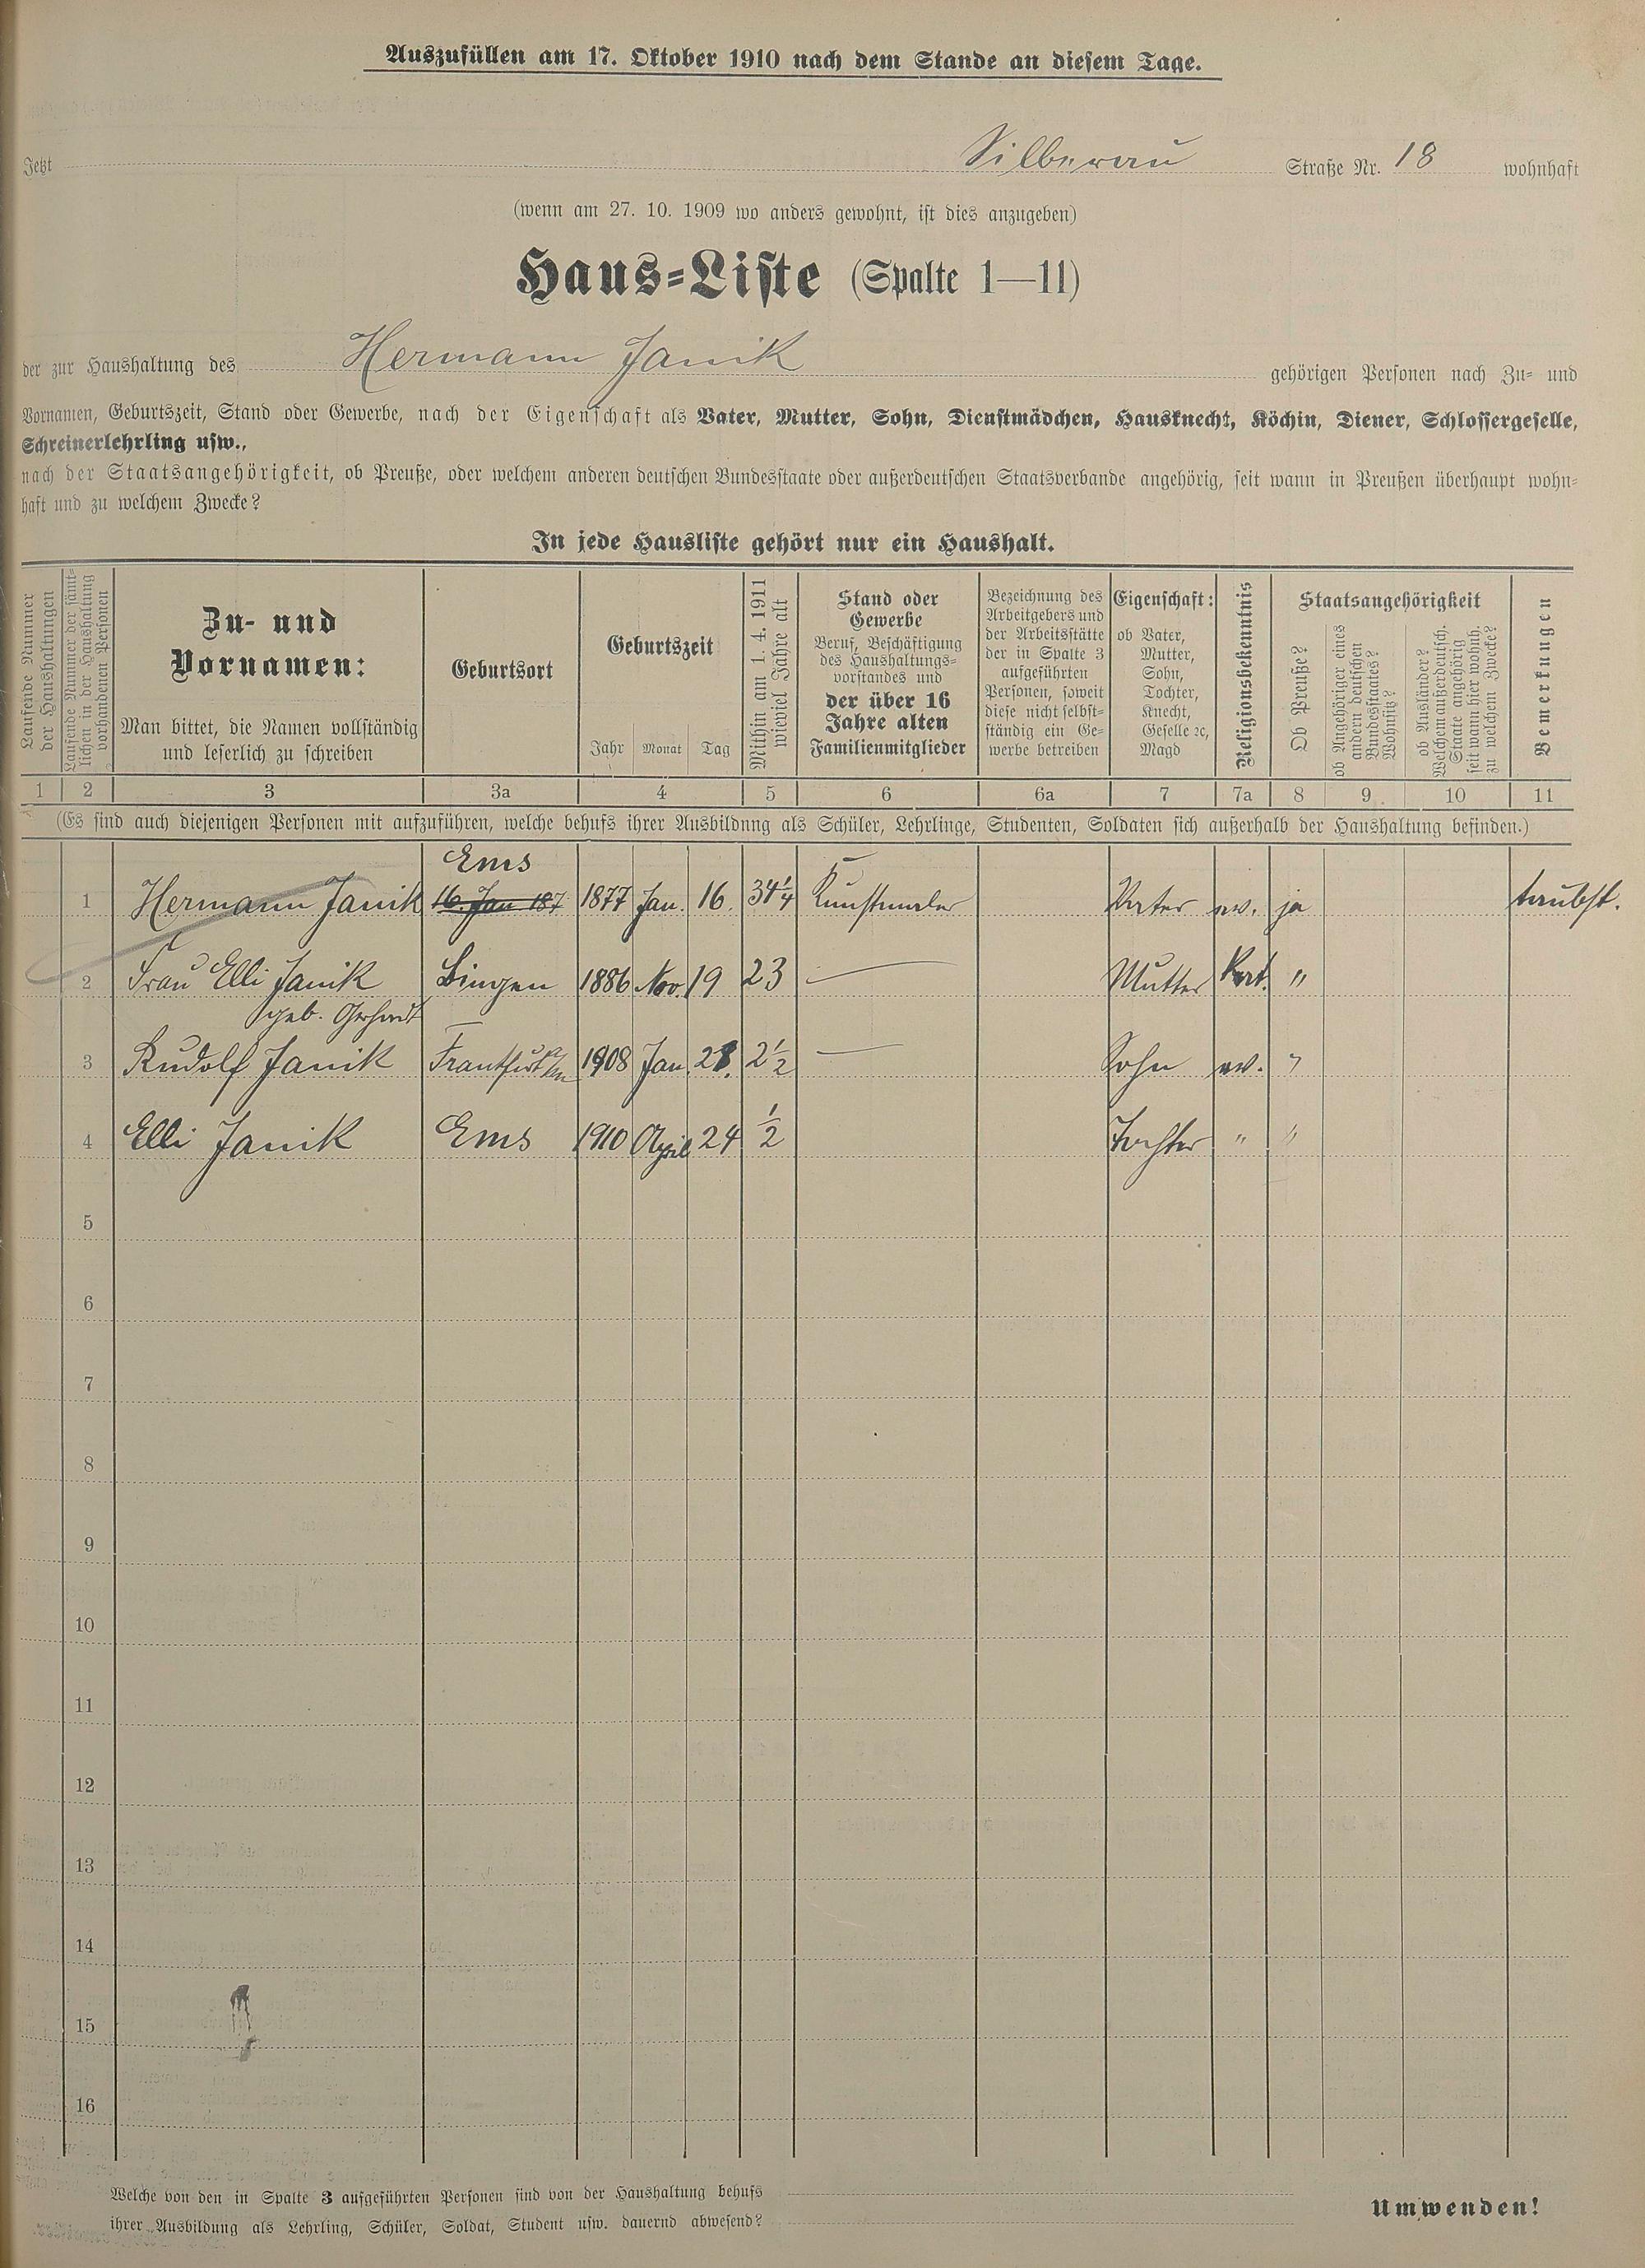 Auszufüllen am 17. Oktober 1910 nach dem Stande an diesem Tage.
Jetzt Silberau Straße Nr. 18 wohnhaft
(wenn am 27. 10. 1909 wo anders gewohnt, ist dies anzugeben)
Haus-Liste (Spalte 1—11)
der zur Haushaltung des Hermann Janik gehörigen Personen nach Zu- und
Vornamen, Geburtszeit, Stand oder Gewerbe, nach der Eigenschaft als Vater, Mutter, Sohn, Dienstmädchen, Hausknecht, Köchin, Diener, Schlossergeselle,
Schreinerlehrling usw.,
nach der Staatsangehörigkeit, ob Preuße, oder welchem anderen deutschen Bundesstaate oder außerdeutschen Staatsverbande angehörig, seit wann in Preußen überhaupt wohn-
haft und zu welchem Zwecke?
In jede Hausliste gehört nur ein Haushalt.
Laufende Nummer
der Haushaltungen
Laufende Nummer der sämt-
lichen in der Haushaltung
vorhandenen Personen
Zu- und
Vornamen:
Man bittet, die Namen vollständig
und leserlich zu schreiben
Geburtsort
Geburtszeit
Jahr Monat Tag
Mithin am 1. 4. 1911
wieviel Jahre alt
Stand oder
Gewerbe
Beruf, Beschäftigung
des Haushaltungs-
vorstandes und
der über 16
Jahre alten
Familienmitglieder
Bezeichnung des
Arbeitgebers und
der Arbeitsstätte
der in Spalte 3
aufgeführten
Personen, soweit
diese nicht selbst-
ständig ein Ge-
werbe betreiben
Eigenschaft:
ob Vater,
Mutter,
Sohn,
Tochter,
Knecht,
Geselle ꝛc,
Magd
Religionsbekenntnis
Staatsangehörigkeit
Ob Preuße?
ob Angehöriger eines
andern deutschen
Bundesstaates?
Wohnsitz?
ob Ausländer?
Welchem außerdeutsch.
Staate angehörig
seit wann hier wohnh.
zu welchem Zwecke?
Bemerkungen
1 2 3 3a 4 5 6 6a 7 7a 8 9 10 11
(Es sind auch diejenigen Personen mit aufzuführen, welche behufs ihrer Ausbildung als Schüler, Lehrlinge, Studenten, Soldaten sich außerhalb der Haushaltung befinden.)
Ems
1 Hermann Janik 16. Jan 187 1877 Jan. 16. 34 1/4 Kunstmaler Vater ev. ja taubst.
2 Frau Elli Janik Bingen 1886 Nov. 19 23 — Mutter Kat. "
geb. Gerhardt
3 Rudolf Janik Frankfurt a/m 1908 Jan. 28. 2 1/2 — Sohn ev. "
4 Elli Janik Ems 1910 April 24 1/2 Tochter " "
5
6
7
8
9
10
11
12
13
14
15
16
Welche von den in Spalte 3 aufgeführten Personen sind von der Haushaltung behufs
ihrer Ausbildung als Lehrling, Schüler, Soldat, Student usw. dauernd abwesend?
Umwenden!